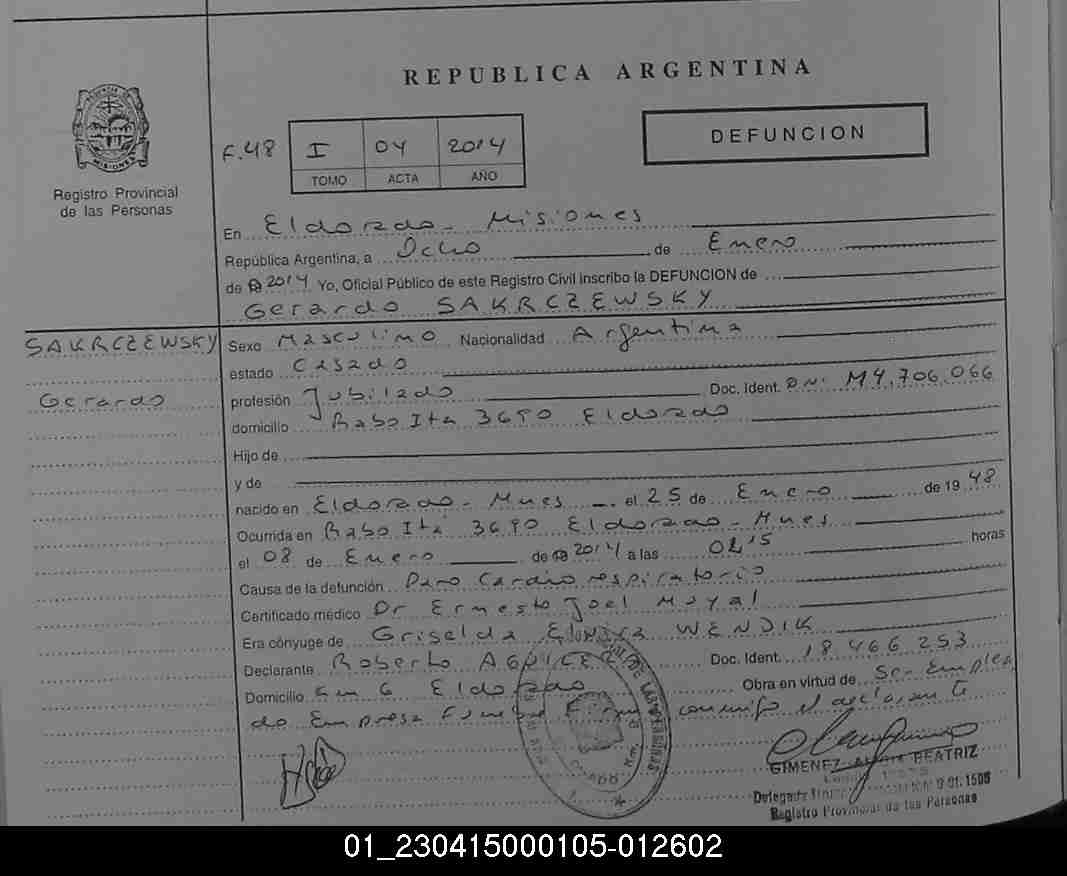 REPUBLICA ARGENTINA
DEFUNCION
F.48 I 04 2014
TOMO ACTA AÑO
MISIONES
Registro Provincial
de las Personas
En Eldorado - Misiones
República Argentina, a Ocho de Enero
de 2014 Yo, Oficial Público de este Registro Civil inscribo la DEFUNCION de
Gerardo SAKRCZEWSKY
SAKRCZEWSKY
Gerardo
Sexo Masculino Nacionalidad Argentina
estado Casado
profesión Jubilado Doc. Ident. DNI M4,706,066
domicilio Rabo Ita 3690 Eldorado
Hijo de
y de
nacido en Eldorado - Mnes - el 25 de Enero de 1948
Ocurrida en Rabo Ita 3690 Eldorado - Mnes
el 08 de Enero de 2014 a las horas
Causa de la defunción Paro Cardio respiratorio
Certificado médico Dr Ernesto Joel
Era cónyuge de Griselda WENDIK
Declarante Roberto Doc. Ident. 18466253
Domicilio Km 6 Eldorado Obra en virtud de Ser Emplea
do Empresa conmigo el declarante
GIMENEZ BEATRIZ
Registro Provincial de las Personas
01_230415000105-012602